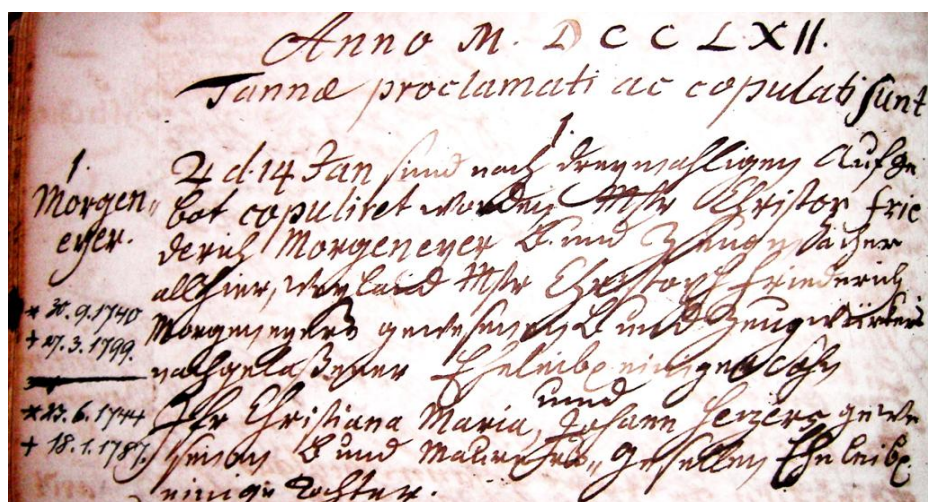 Anno M. DCCLXII.
Tannæ proclamati ac copulati sunt
1.
1.
Morgen„
eyer.
* 20.9.1740
+ 27.3.1799.
* 23.6.1744
+ 18.1.1787.
d. 14 Jan sind nach dreymahligen Aufge
bot copuliret worden Mstr Christof Frie
derich Morgeneyer B. und Zeugmacher
allhier, weyland Mstr Christoph Friederich
Morgeneyers gewesenen B und Zeugwürkers
nachgelaßener Eheleibl. einiger Sohn
und
Jfr Christiana Maria, Johann gewe
senen B und Maurers„ gesellen Eheleibl.
einige Tochter.